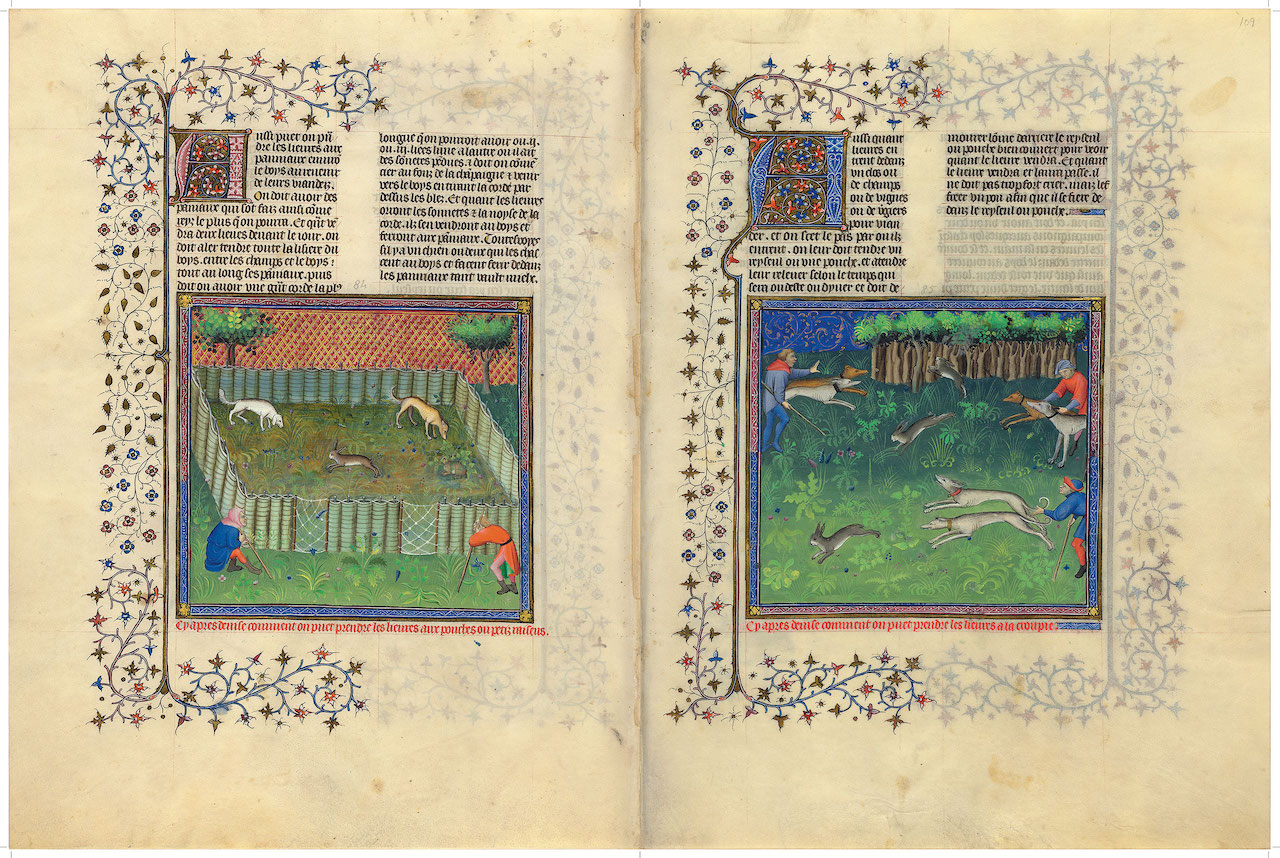 ussi puet on pñ
dre les lieures aux
panniaux enmiu
le boys au reuenir
de leurs viandez.
On doit auoir des
paniaux qui sõt faiz ainsi cõme
iey le plus q̃ on pourra. Et quãt vẽ
dra deux lieues deuant le iour. on
doit aler tendre toute la lisiere du
boys. entre les champs et le boys:
tout au long ses paniaux. puis
doit on auoir vne grãt corde la plꝰ
84
longue q̃ on pourroit auoir ou .ij.
ou .iij. liees lune a lautre ou il ait
des sõnetes pẽdues. ⁊ doit on cõmẽ
cier au fonz de la chãpaigne ⁊ venir
vers le boys en tirant la corde par
dessus les blez. Et quant les lieures
orront les sonnetes ⁊ la noyse de la
corde. ilz sen vendront au boys et
ferront aux paniaux. Toutesvoyes
sil y a vn chien ou deux qui les chas
cent au boys et facent ferir dedanz
les panniaux tant vault mielx.
Cy apres deuise comment on puet prendre les lieures aux pouches ou petiz raiseus.
109
ussi quant
lieures en
trent dedanz
vn clos ou
de champs
ou de vignes
ou de vgiers
pour vian
der. et on scet le pas par ou ilz
entrent. on leur doit tendre vn
reyseul ou vne pouche. et atendre
leur releuer selon le temps qui
sera ou destre ou dyuer et doit de
mourer lõme darriere le reyseul
ou pouche bien couuert pour veoir
quant le lieure vendra. Et quant
le lieure vendra et laura passe. il
ne doit pas trop fort crier. maiz les
frier vn pou afin que il se fiere de
danz le reyseul ou pouche.
Cy apres deuise comment on puet prendre les lieures a la croupie.